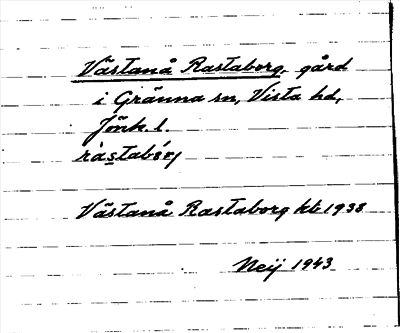 Västanå Rastaborg, gård
i Gränna sn, Vista hd,
Jönk. l.
Västanå Rastaborg kb 1938
Neij 1943